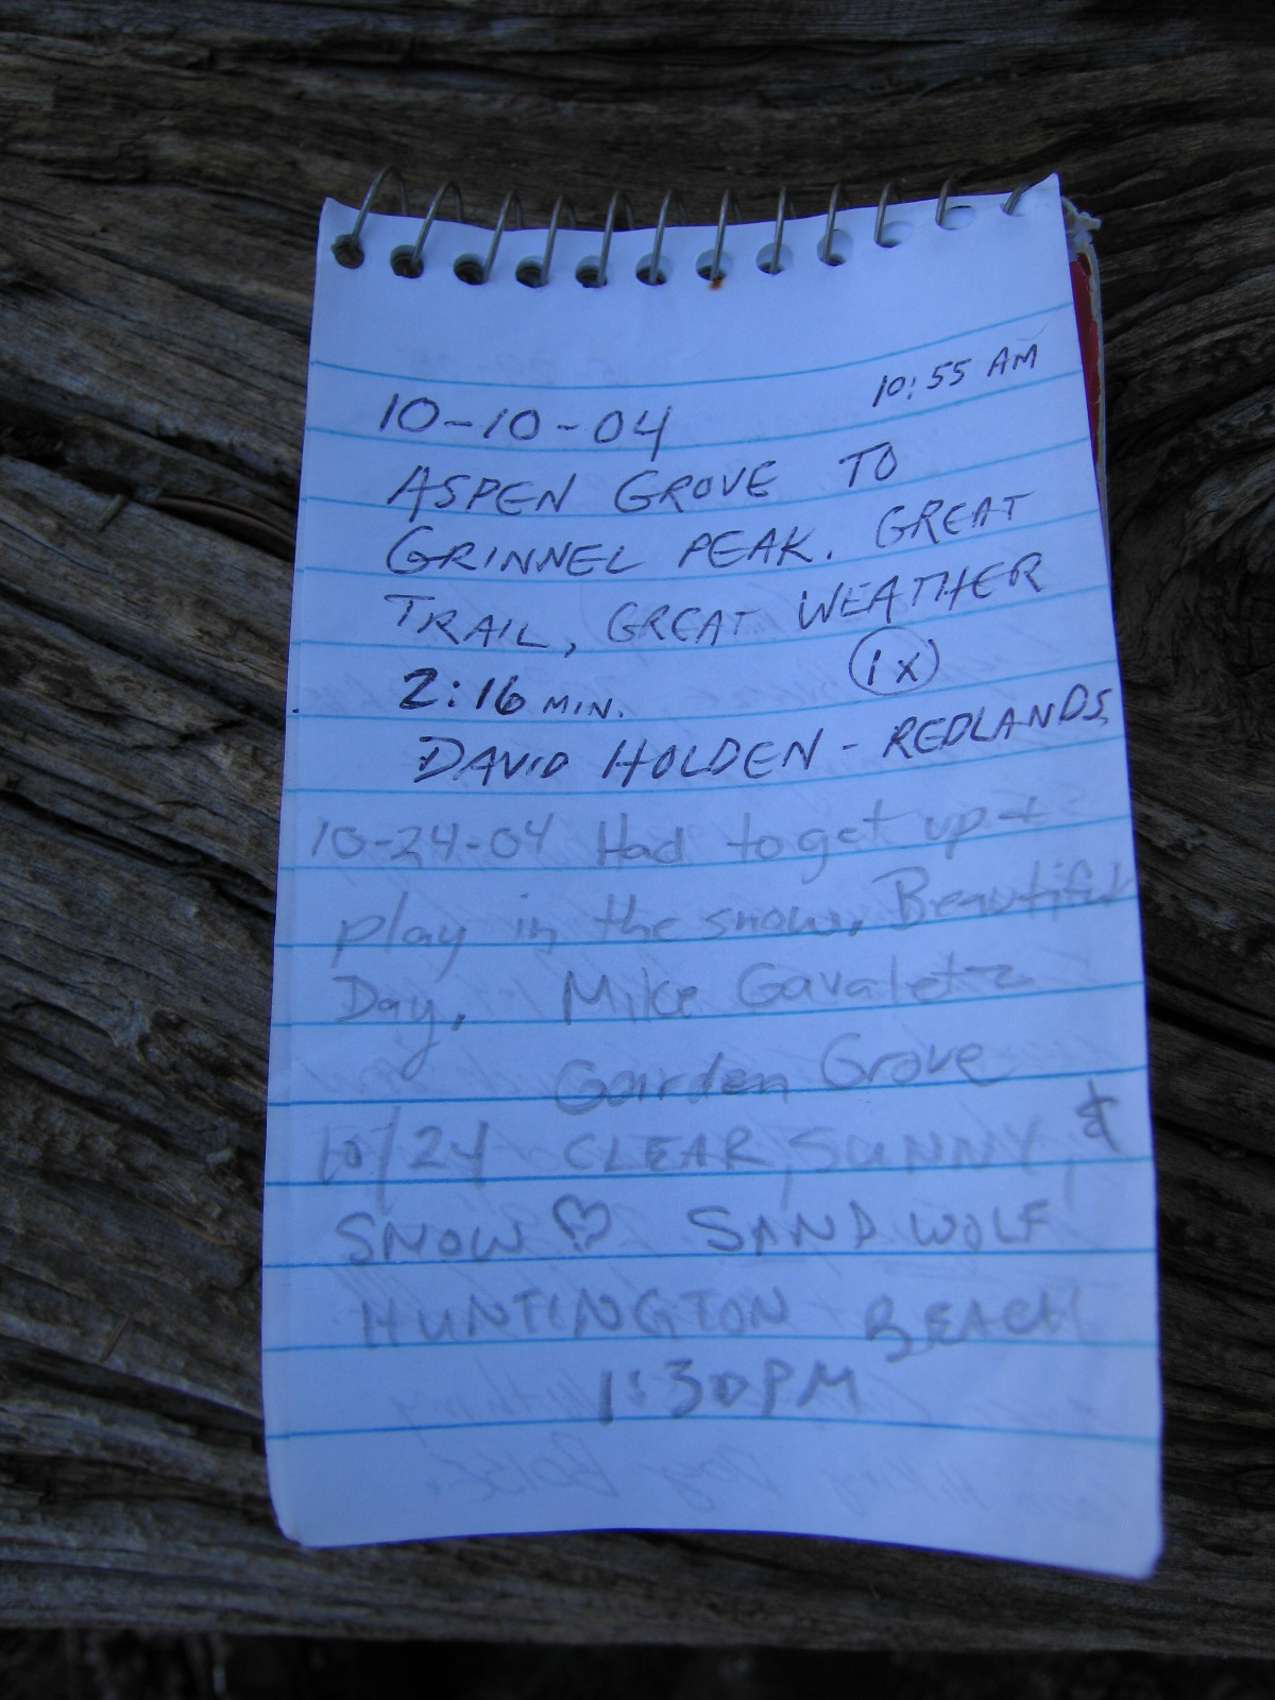 10:55 AM
10-10-04
ASPEN GROVE TO
GRINNEL PEAK. GREAT
TRAIL, GREAT WEATHER
2:16 MIN. 1X
DAVID HOLDEN - REDLANDS
10-24-04 Had to get up +
play in the snow. Beautiful
Day. Mike
Garden Grove
10/24 CLEAR, SUNNY, &
SNOW ♡ SANDWOLF
HUNTINGTON BEACH
1:30PM